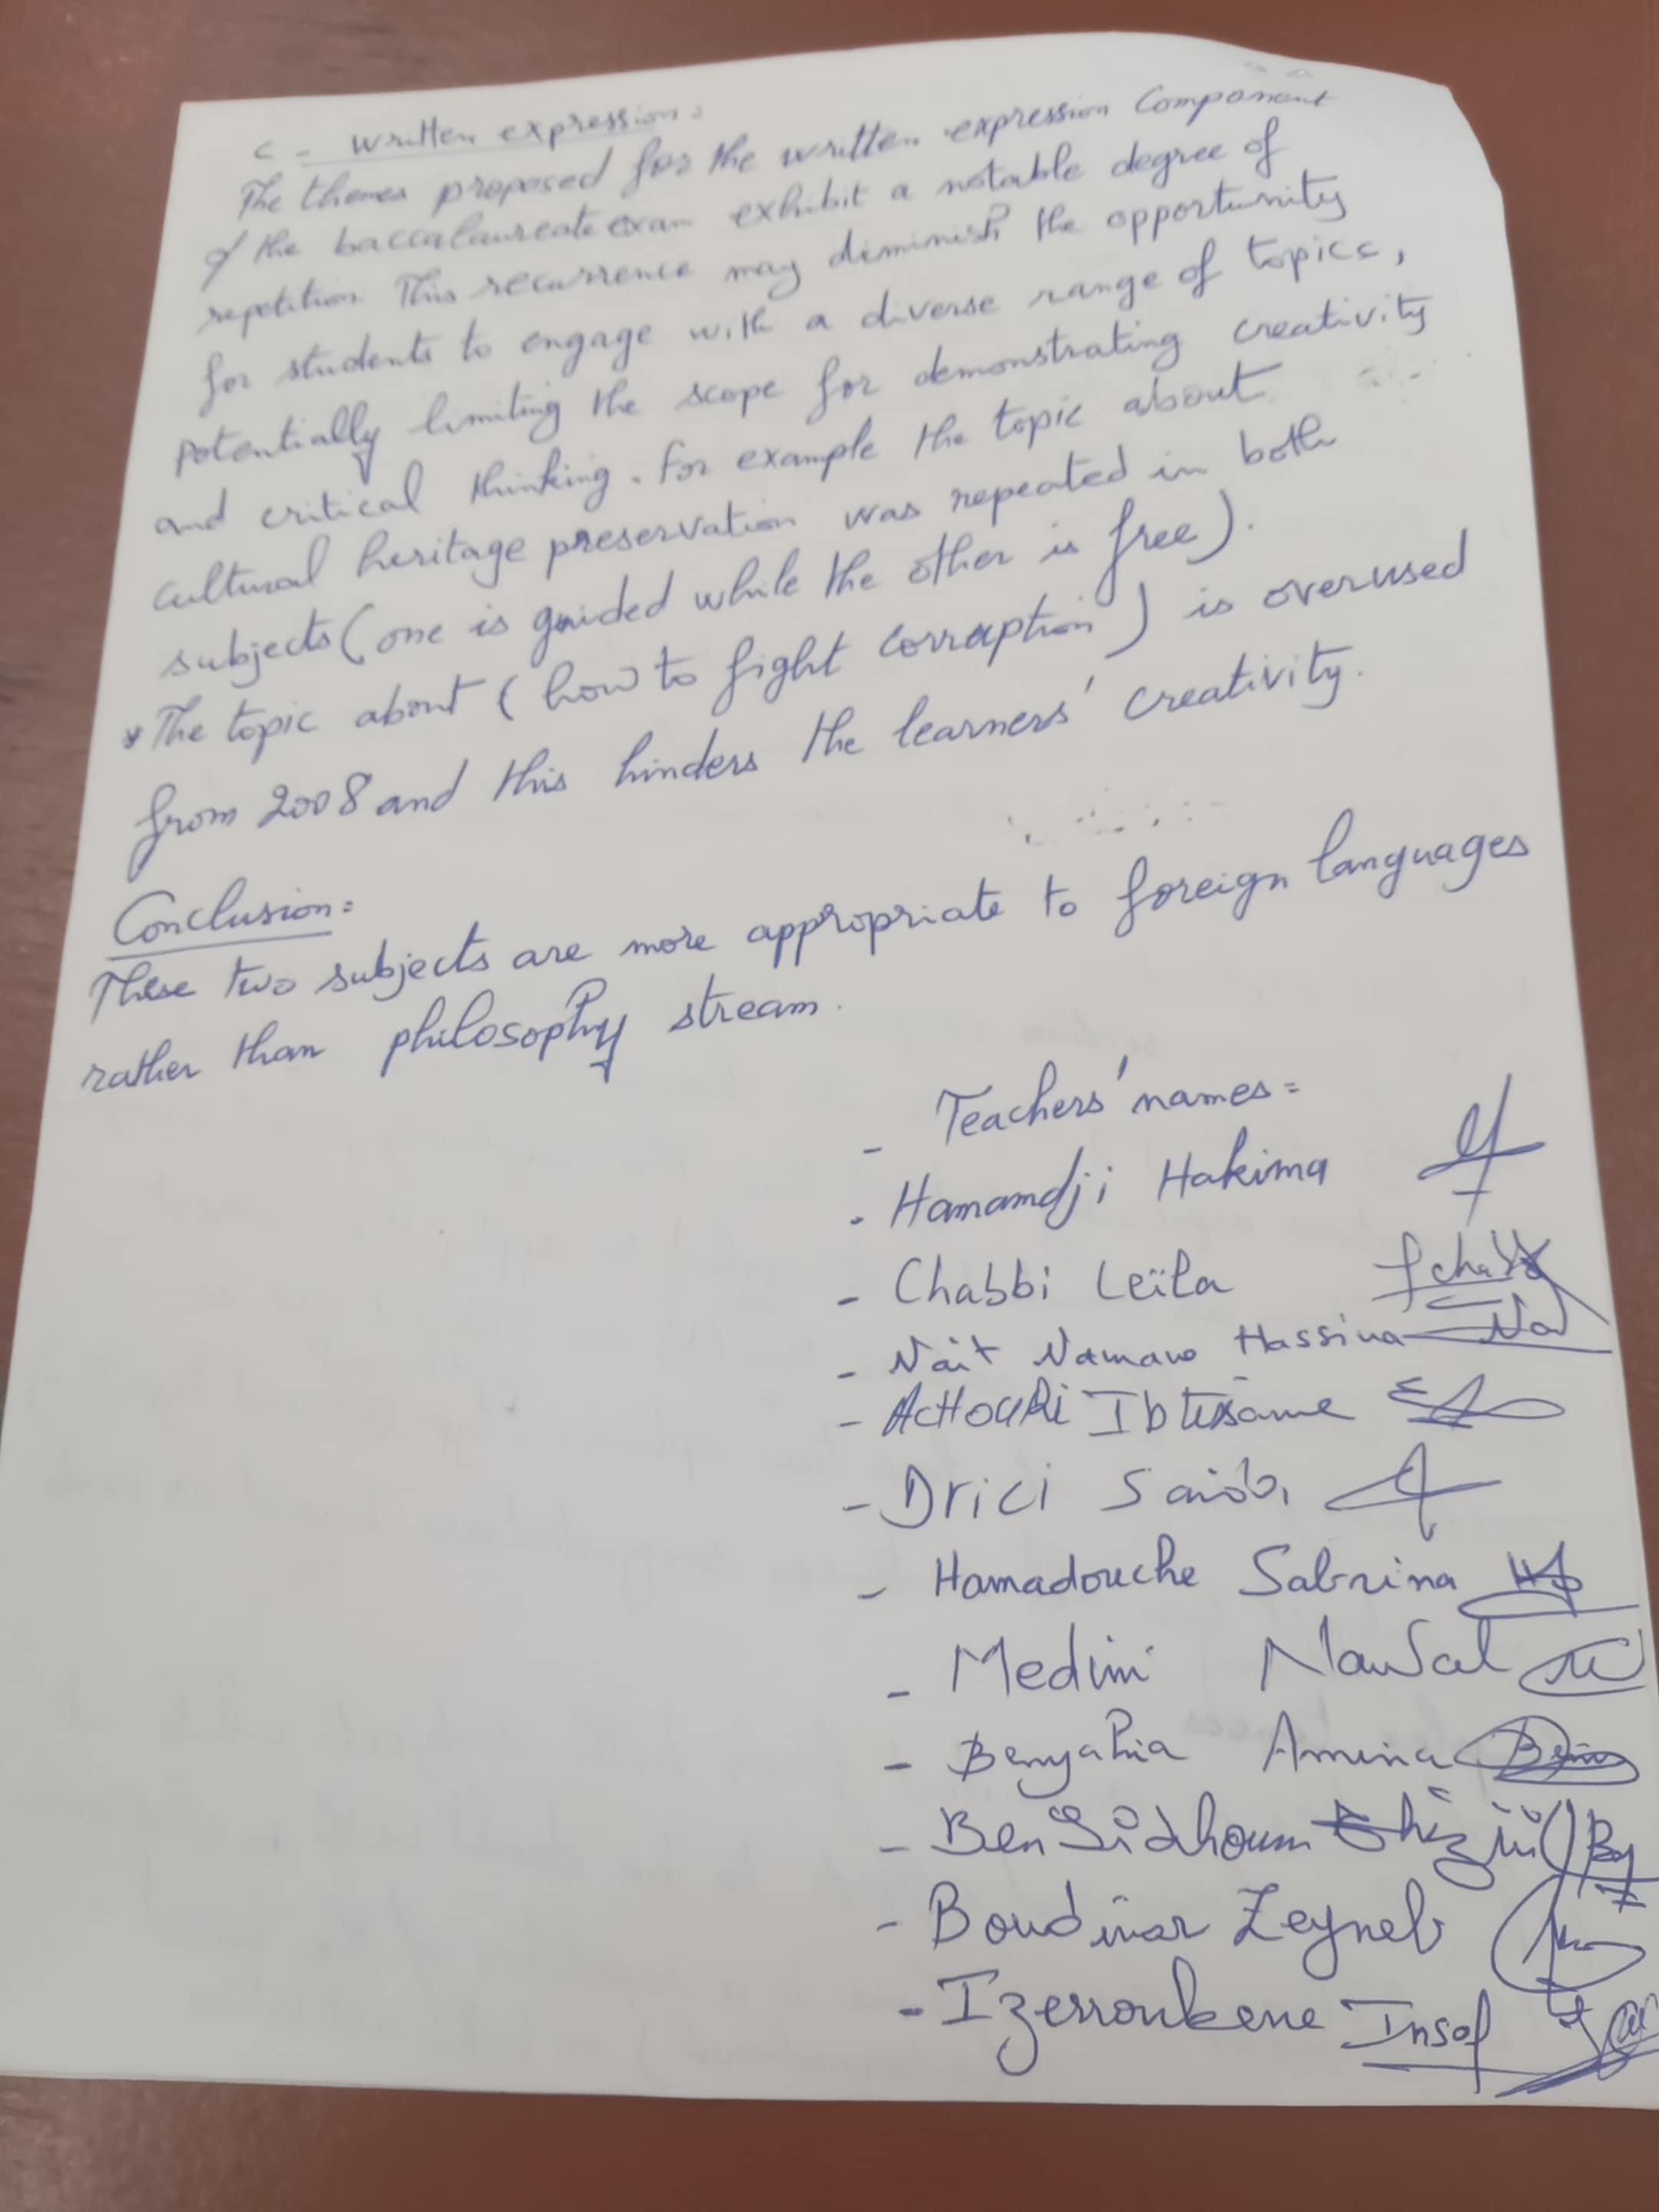 C - Written expression:
The themes proposed for the written expression component
of the baccalaureate exam exhibit a notable degree of
repetition. This recurrence may diminish the opportunity
for students to engage with a diverse range of topics,
potentially limiting the scope for demonstrating creativity
and critical thinking. For example the topic about
cultural heritage preservation was repeated in both
subjects (one is guided while the other is free).
* The topic about (how to fight corruption) is overused
from 2008 and this hinders the learners' creativity.
Conclusion:
These two subjects are more appropriate to foreign languages
rather than philosophy stream.
- Teachers' names:
- Hamamdji Hakima
- Chabbi Leïla
- Nait Namane Hassina
- ACHOURI Ibtissame
- Drici
- Hamadouche Sabrina
- Medini Nawal
- Benyahia Amina
- Ben Sidhoum
- Boudinar Zeyneb
- Izerroukene Insaf